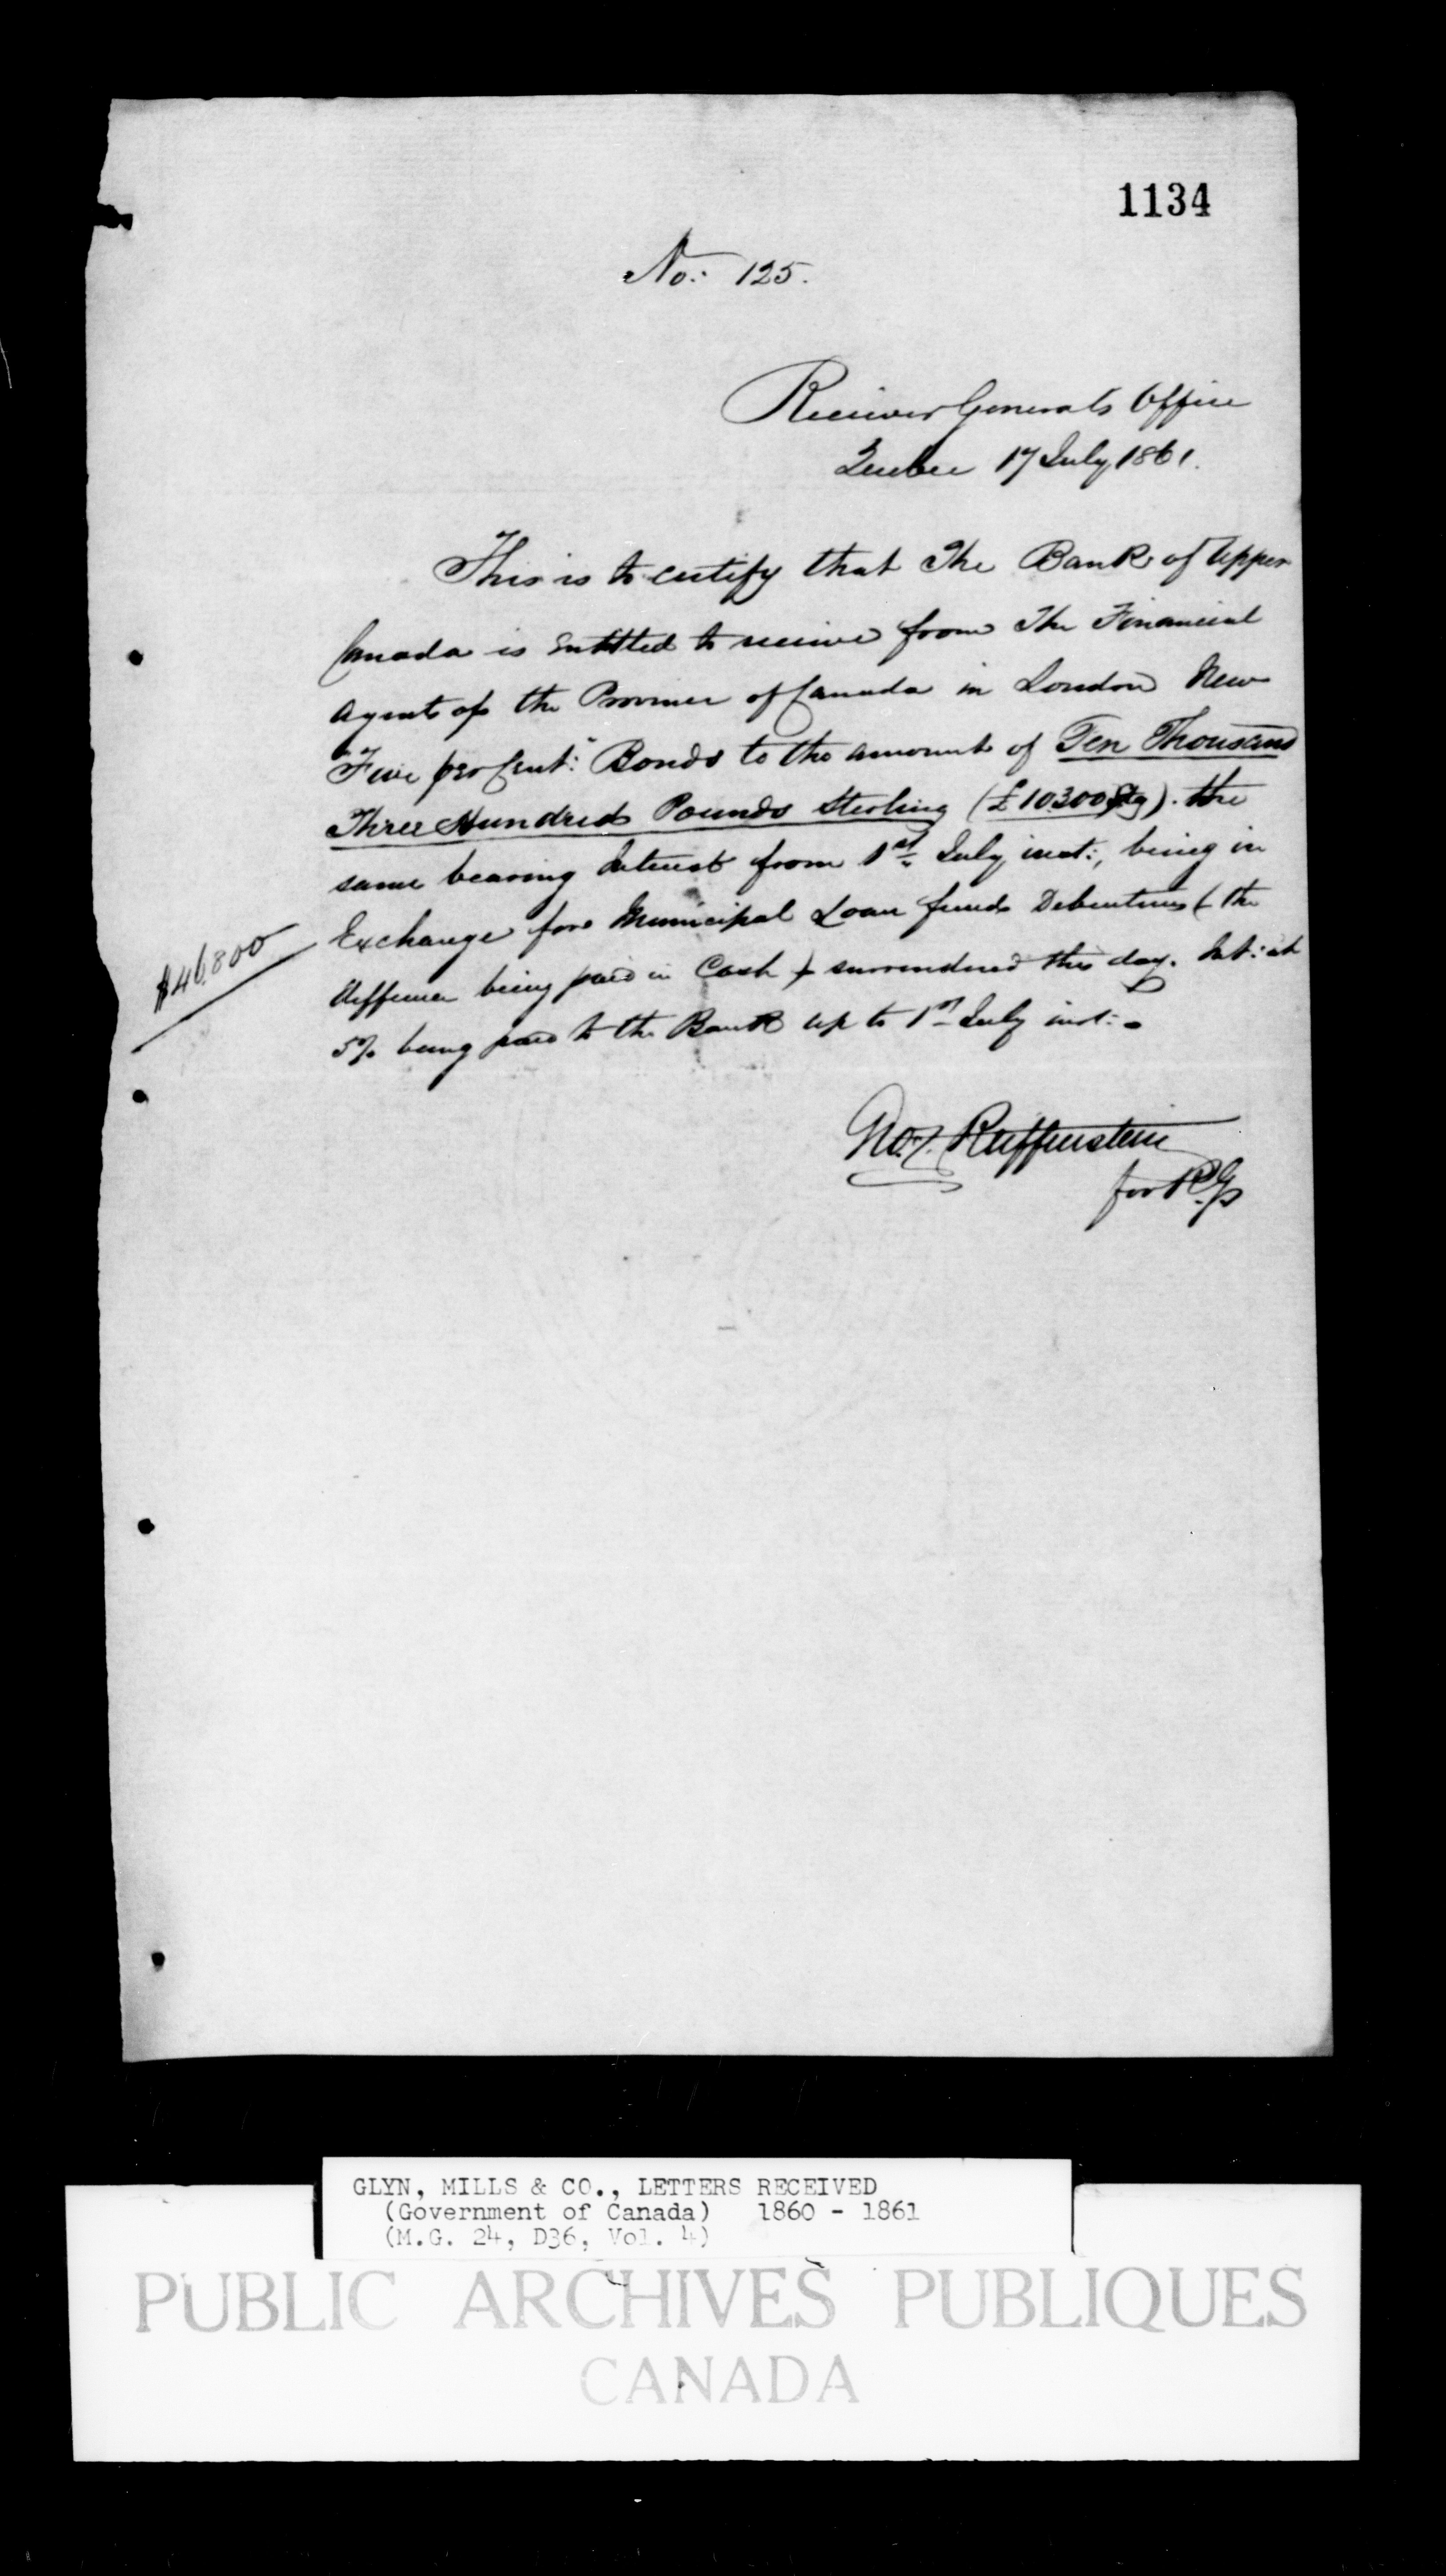 1134
No: 125.
Receiver Generals Office
Quebec 17 July 1861.
This is to certify that The Bank of Upper
Canada is Entitled to receive from The Financial
Agents of the Province of Canada in London New
Five per Cent: Bonds to the amount of Ten Thousand
Three Hundred Pounds Sterling (£10300 Stg). the
same bearing Interest from 1st July inst:, being in
Exchange for Municipal Loan funds Debentures (the
$46800
difference being paid in Cash) surrendered this day. Int: at
5% being paid to the Bank up to 1st July inst:
Reiffenstein
for R.G
GLYN, MILLS & CO., LETTERS RECEIVED
(Government of Canada) 1860 - 1861
(M.G. 24, D36, Vol. 4)
PUBLIC ARCHIVES PUBLIQUES
CANADA